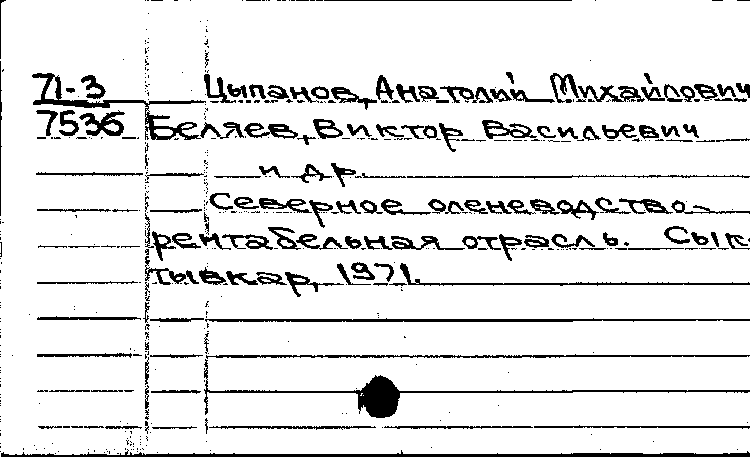 71-3 Цыпанов, Анатолий Михайлович
7536 Беляев, Виктор Васильевич
и др.
Северное оленеводство-
рентабельная отрасль. Сык-
тывкар, 1971.